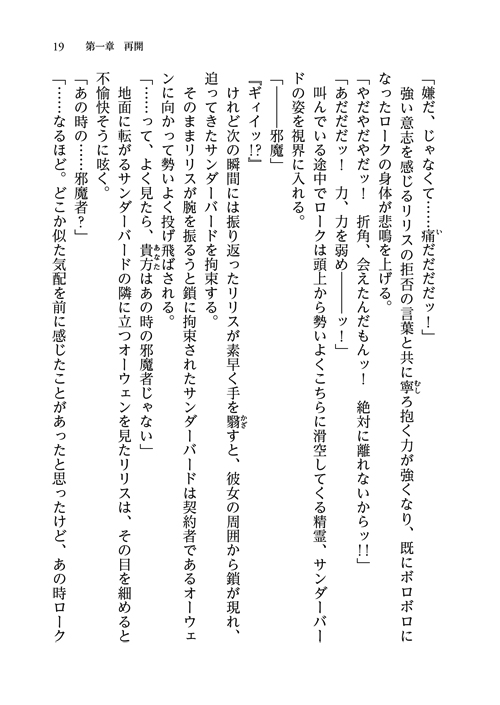 19　第一章　再開
「嫌だ、じゃなくて……痛だだだだッ！」
　強い意志を感じるリリスの拒否の言葉と共に寧ろ抱く力が強くなり、既にボロボロに
なったロークの身体が悲鳴を上げる。
「やだやだやだッ！　折角、会えたんだもんッ！　絶対に離れないからッ!!」
「あだだだッ！　力、力を弱め――ッ！」
　叫んでいる途中でロークは頭上から勢いよくこちらに滑空してくる精霊、サンダーバー
ドの姿を視界に入れる。
「――邪魔」
『ギィイッ!?』
　けれど次の瞬間には振り返ったリリスが素早く手を翳すと、彼女の周囲から鎖が現れ、
迫ってきたサンダーバードを拘束する。
　そのままリリスが腕を振るうと鎖に拘束されたサンダーバードは契約者であるオーウェ
ンに向かって勢いよく投げ飛ばされる。
「……って、よく見たら、貴方はあの時の邪魔者じゃない」
　地面に転がるサンダーバードの隣に立つオーウェンを見たリリスは、その目を細めると
不愉快そうに呟く。
「あの時の……邪魔者？」
「……なるほど。どこか似た気配を前に感じたことがあったと思ったけど、あの時ローク